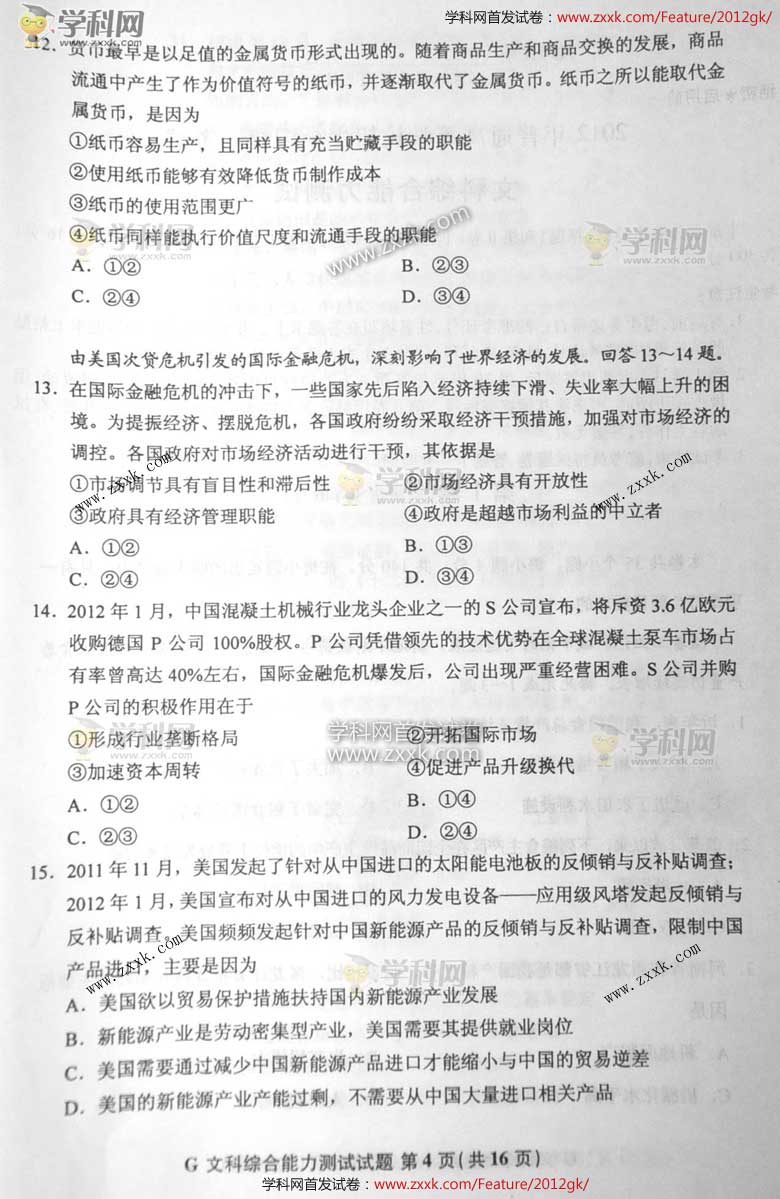 学科网首发试卷：www.zxxk.com/Feature/2012gk/
学科网
www.zxxk.com
12. 货币最早是以足值的金属货币形式出现的。随着商品生产和商品交换的发展，商品
流通中产生了作为价值符号的纸币，并逐渐取代了金属货币。纸币之所以能取代金
属货币，是因为
①纸币容易生产，且同样具有充当贮藏手段的职能
②使用纸币能够有效降低货币制作成本
③纸币的使用范围更广
④纸币同样能执行价值尺度和流通手段的职能
学科网
www.zxxk.com
www.zxxk.com
学科网
www.zxxk.com
A．①② B．②③
C．②④ D．③④
由美国次贷危机引发的国际金融危机，深刻影响了世界经济的发展。回答 13～14 题。
13. 在国际金融危机的冲击下，一些国家先后陷入经济持续下滑、失业率大幅上升的困
境。为提振经济、摆脱危机，各国政府纷纷采取经济干预措施，加强对市场经济的
调控。各国政府对市场经济活动进行干预，其依据是
①市场调节具有盲目性和滞后性 ②市场经济具有开放性
③政府具有经济管理职能 ④政府是超越市场利益的中立者
www.zxxk.com
学科网
www.zxxk.com
www.zxxk.com
A．①② B．①③
C．②④ D．③④
14. 2012 年 1 月，中国混凝土机械行业龙头企业之一的 S 公司宣布，将斥资 3.6 亿欧元
收购德国 P 公司 100%股权。P 公司凭借领先的技术优势在全球混凝土泵车市场占
有率曾高达 40%左右，国际金融危机爆发后，公司出现严重经营困难。S 公司并购
P 公司的积极作用在于
①形成行业垄断格局 ②开拓国际市场
③加速资本周转 ④促进产品升级换代
学科网
www.zxxk.com
学科网首发试卷
www.zxxk.com
学科网
www.zxxk.com
A．①② B．①④
C．②③ D．②④
15. 2011 年 11 月，美国发起了针对从中国进口的太阳能电池板的反倾销与反补贴调查；
2012 年 1 月，美国宣布对从中国进口的风力发电设备——应用级风塔发起反倾销与
反补贴调查。美国频频发起针对中国新能源产品的反倾销与反补贴调查，限制中国
产品进口，主要是因为
www.zxxk.com
学科网
www.zxxk.com
www.zxxk.com
A．美国欲以贸易保护措施扶持国内新能源产业发展
B．新能源产业是劳动密集型产业，美国需要其提供就业岗位
C．美国需要通过减少中国新能源产品进口才能缩小与中国的贸易逆差
D．美国的新能源产业产能过剩，不需要从中国大量进口相关产品
G 文科综合能力测试试题 第 4 页(共 16 页)
学科网首发试卷：www.zxxk.com/Feature/2012gk/